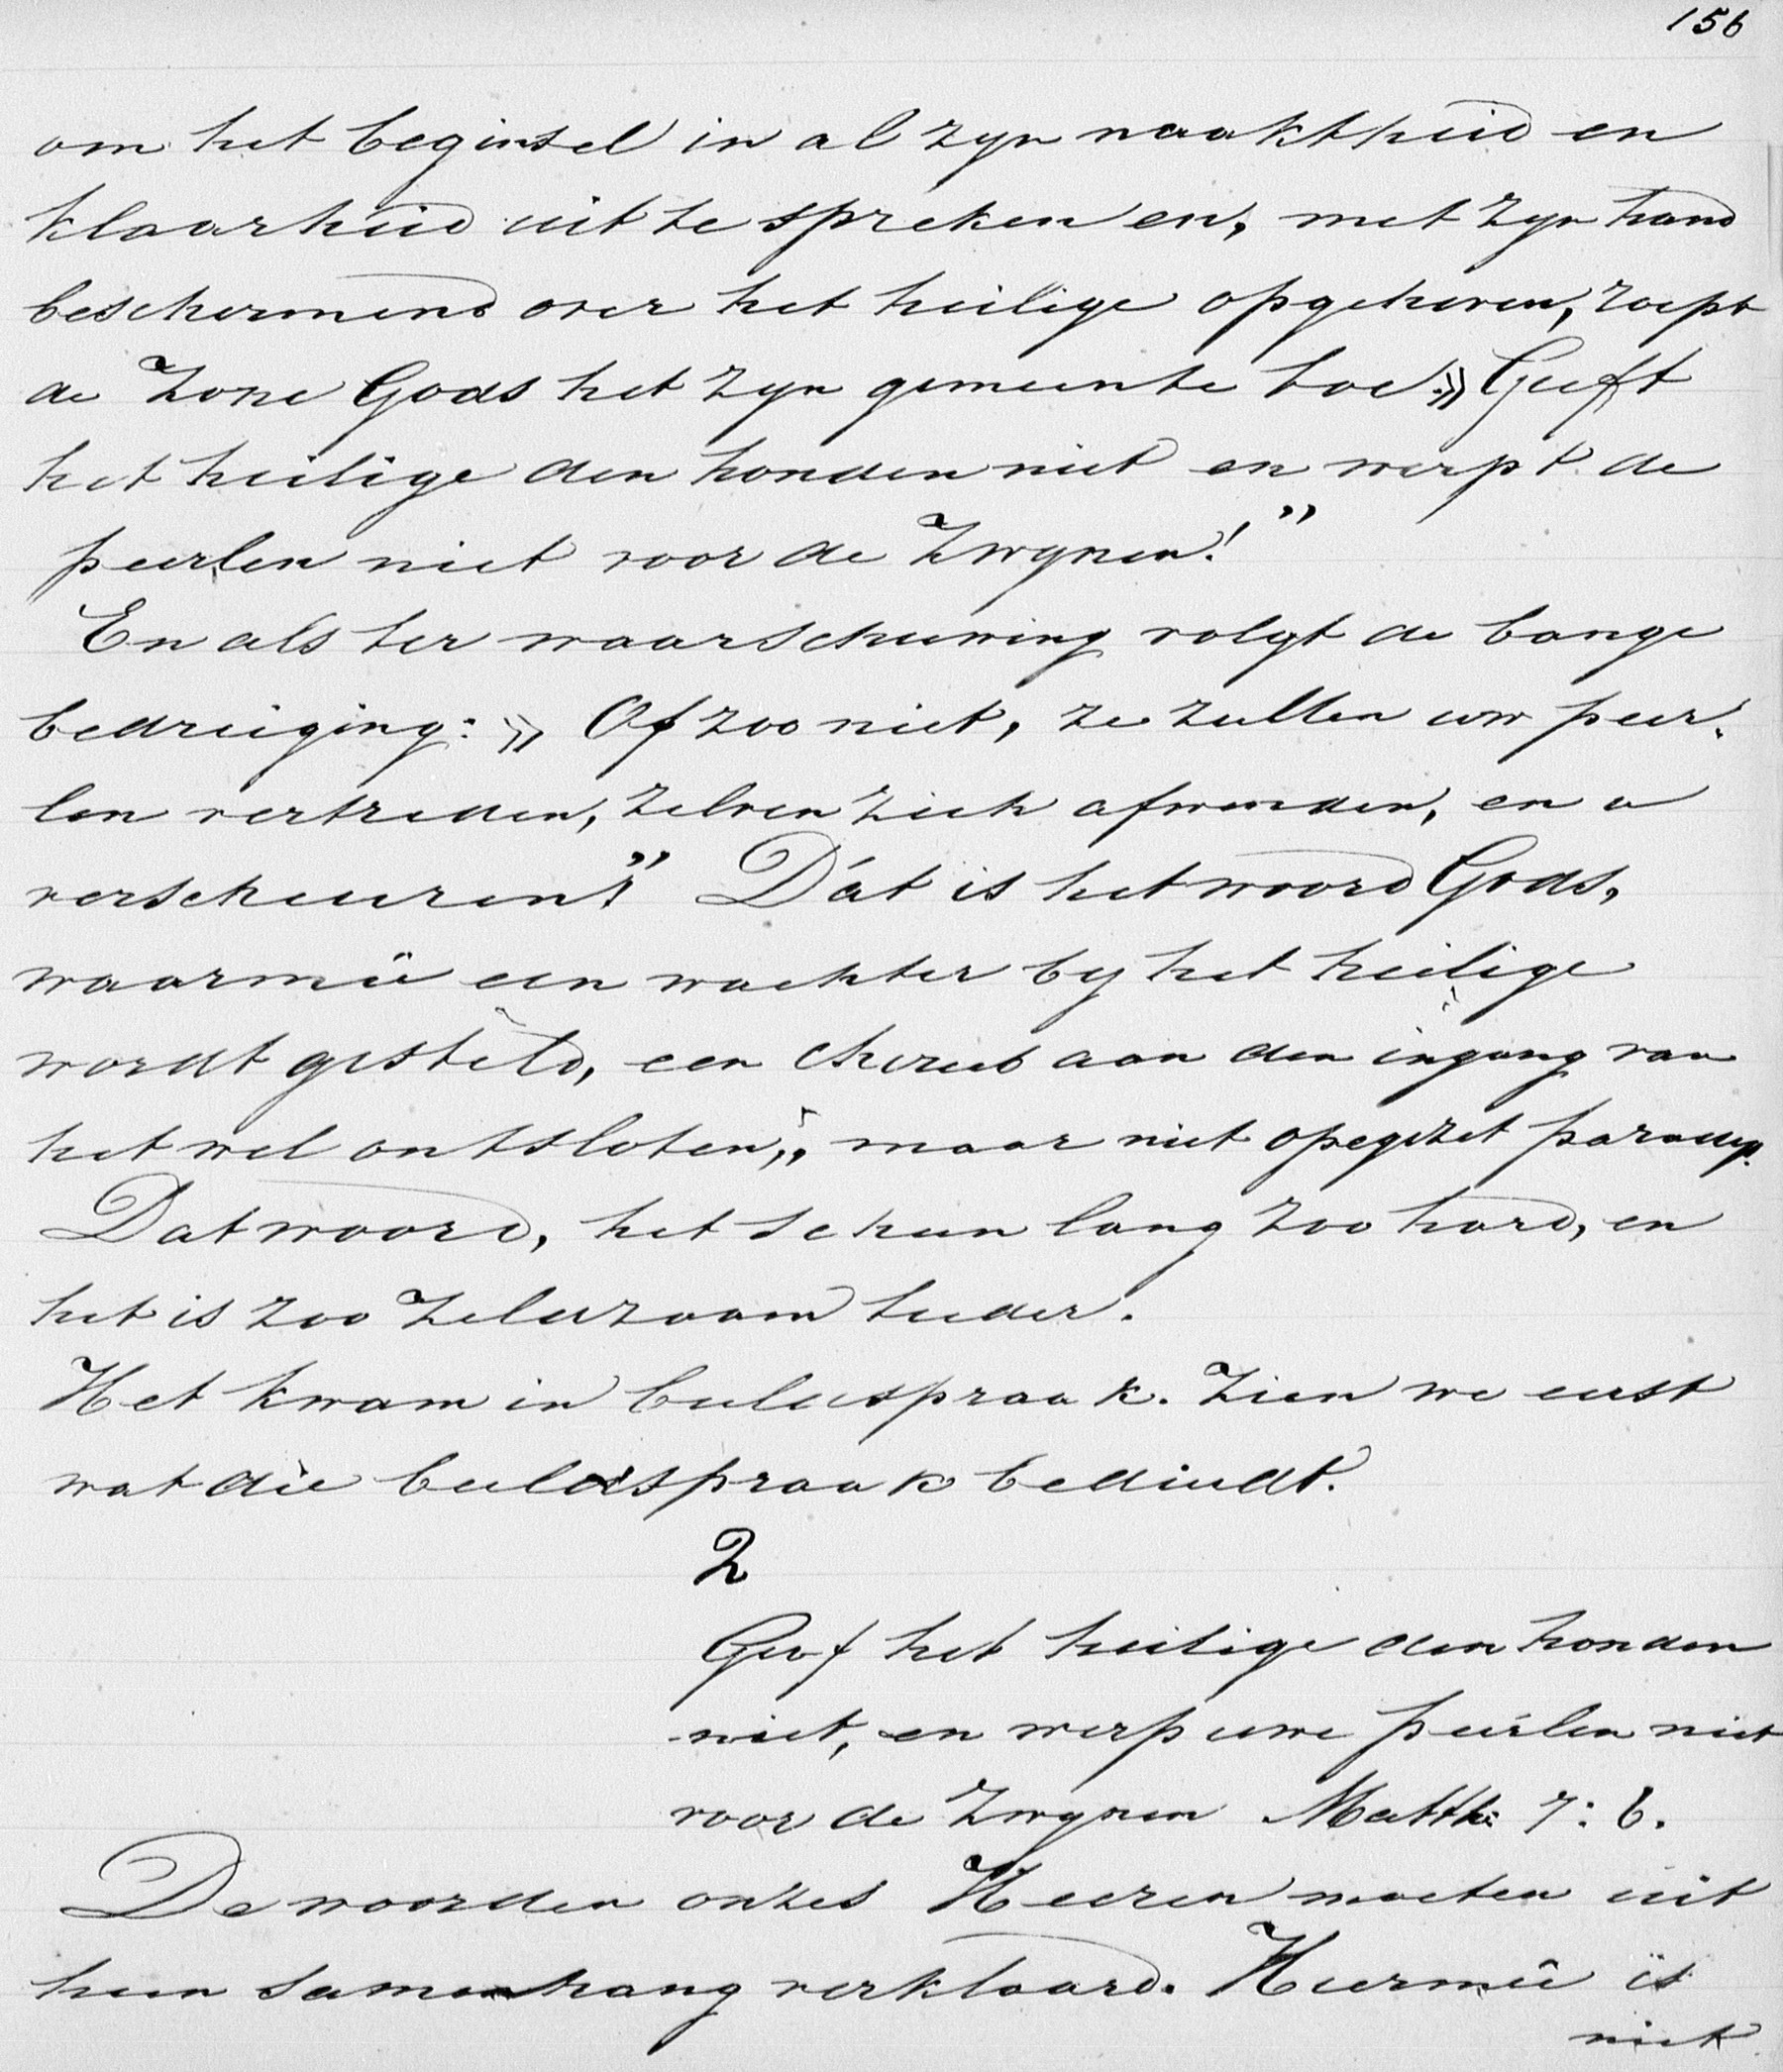 156
om het beginsel in al zyn naaktheid en
klaarheid uit te spreken en, met zyn hand
beschermend over het heilige opgeheven, roept
de Zone Gods het zyn gemeente toe: » Geeft
het heilige den honden niet en werpt de
peerlen niet voor de Zwynen!”
En als ter waarschuwing volgt de bange
bedreiging: » Of zoo niet, ze zullen uw peer-
len vertreden, zelven zich afwenden, en u
verscheuren!” Dát is het woord Gods,
waarmeê een wachter by het heilige
wordt gesteld, een Cherub aan den ingang van
het wel ontsloten, maar niet opegezet paradys.
Dat woord, het scheen lang zoo hard, en
het is zoo zeldzaam teeder.
Het kwam in beeldspraak. Zien we eerst
wat die beeldspraak bediedt.
2
Geef het heilige den honden
niet, en werp uwe peerlen niet
voor de Zwynen Matth: 7: 6.
De woorden onzes Heeren moeten uit
hun samenhang verklaard. Hiermeê is
niet